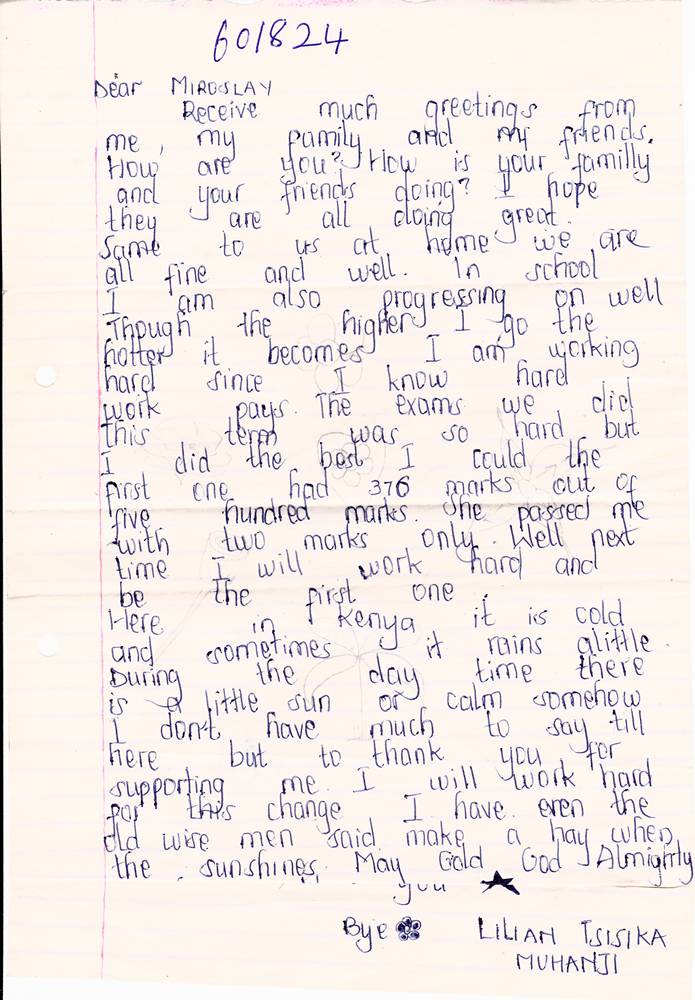 601824
Dear MIROSLAV
Receive much greetings from
me, my family and my friends.
How are you? How is your familly
and your friends doing? I hope
they are all doing great.
Same to us at home we are
all fine and well. In school
I am also progressing on well
Though the higher I go the
hotter it becomes I am working
hard since I know hard
work pays. The exams we did
this term was so hard but
I did the best I could the
first one had 376 marks out of
five hundred marks. She passed me
with two marks only. Well next
time I will work hard and
be the first one.
Here in Kenya it is cold
and sometimes it rains alittle.
During the day time there
is a little sun or calm somehow
I don't have much to say till
here but to thank you for
supporting me. I will work hard
for this change I have even the
old wise men said make a hay when
the sunshines. May Gold God Almightly
you
Bye LILIAN ISISIKA
MUHANJI